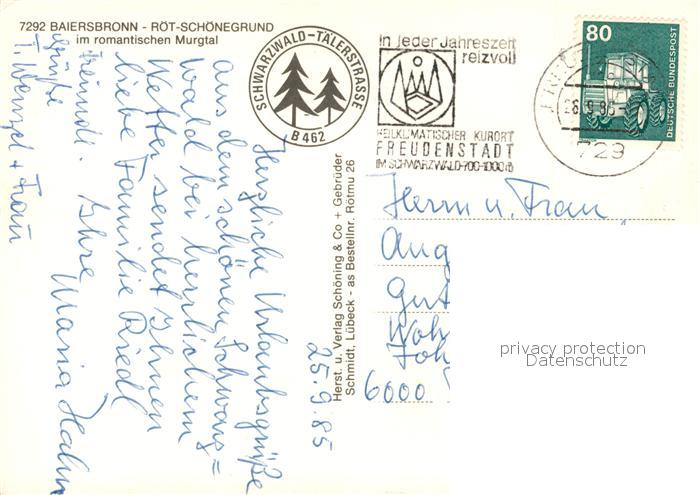 7292 BAIERSBRONN - RÖT-SCHÖNEGRUND
im romantischen Murgtal
SCHWARZWALD-TÄLERSTRASSE
B 462
In jeder Jahreszeit
reizvoll
HEILKLIMATISCHER KURORT
FREUDENSTADT
IM SCHWARZWALD 700-1000 m
80
DEUTSCHE BUNDESPOST
26.9.85
729
25.9.85
Herzliche Urlaubsgrüße
aus dem schönen Schwarz=
wald bei herrlichem
Wetter sendet Ihnen
liebe Familie Riedl
freundl. Ihre Maria Hahn
Grüße
T. Wenzel + Frau
Herst. u. Verlag Schöning & Co + Gebrüder
Schmidt, Lübeck - as Bestellnr. Rötmu 26
Herrn u. Frau
Aug
Gut
Woh
Joh
6000
privacy protection
Datenschutz